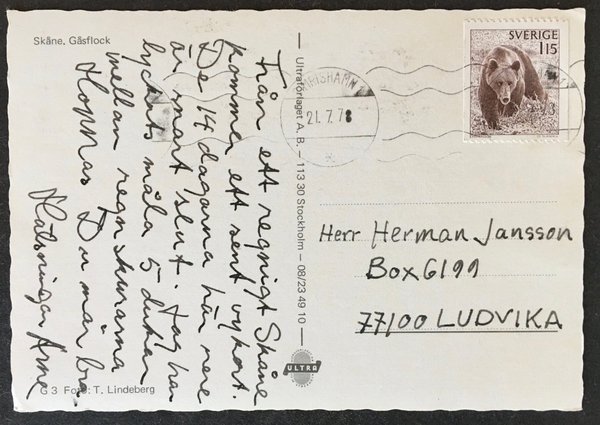 Skåne. Gåsflock
Från ett regnigt Skåne
kommer ett sent vykort.
De 14 dagarna här nere
är snart slut. Jag har
lyckats måla 5 dukar
mellan regnskurarna
Hoppas Du mår bra.
Hälsningar Arne
G 3 Foto: T. Lindeberg
Ultraförlaget A. B. – 113 30 Stockholm – 08/23 49 10
ULTRA
21.7.78
SVERIGE
115
Herr Herman Jansson
Box 6199
77100 LUDVIKA